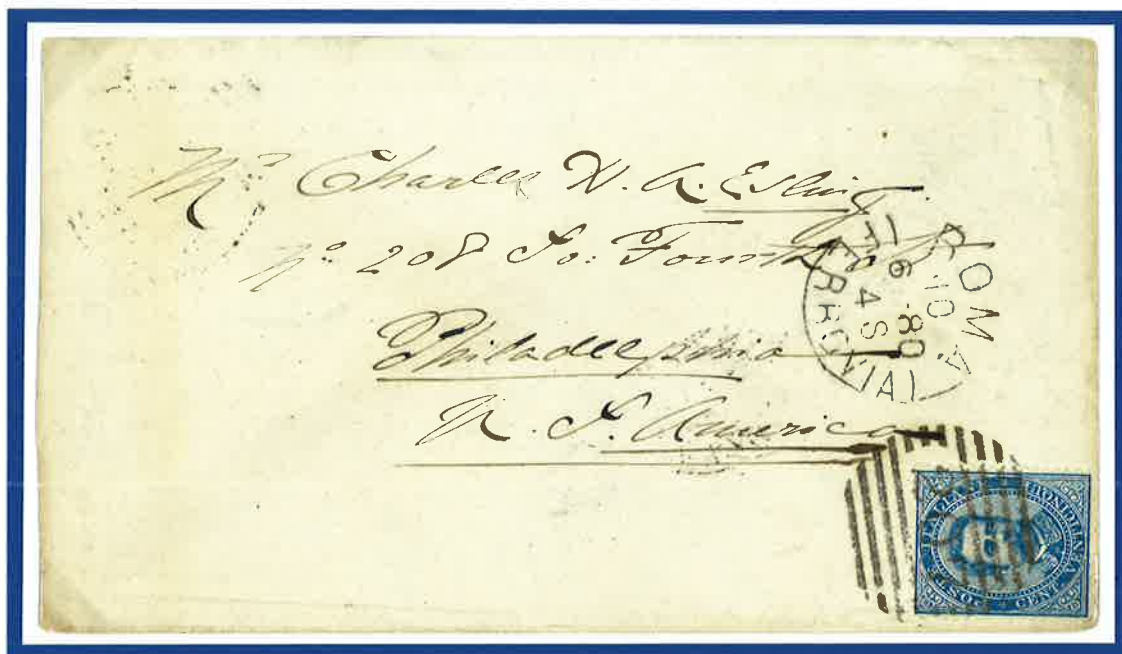 Mr. Charles H. A. Esling
No. 208 So. Fourth St.
Philadelphia
U. S. America
ROMA
10
6 - 80
4 S
(FERROVIA)
POSTE ITALIANE
VENTICINQUE CENT